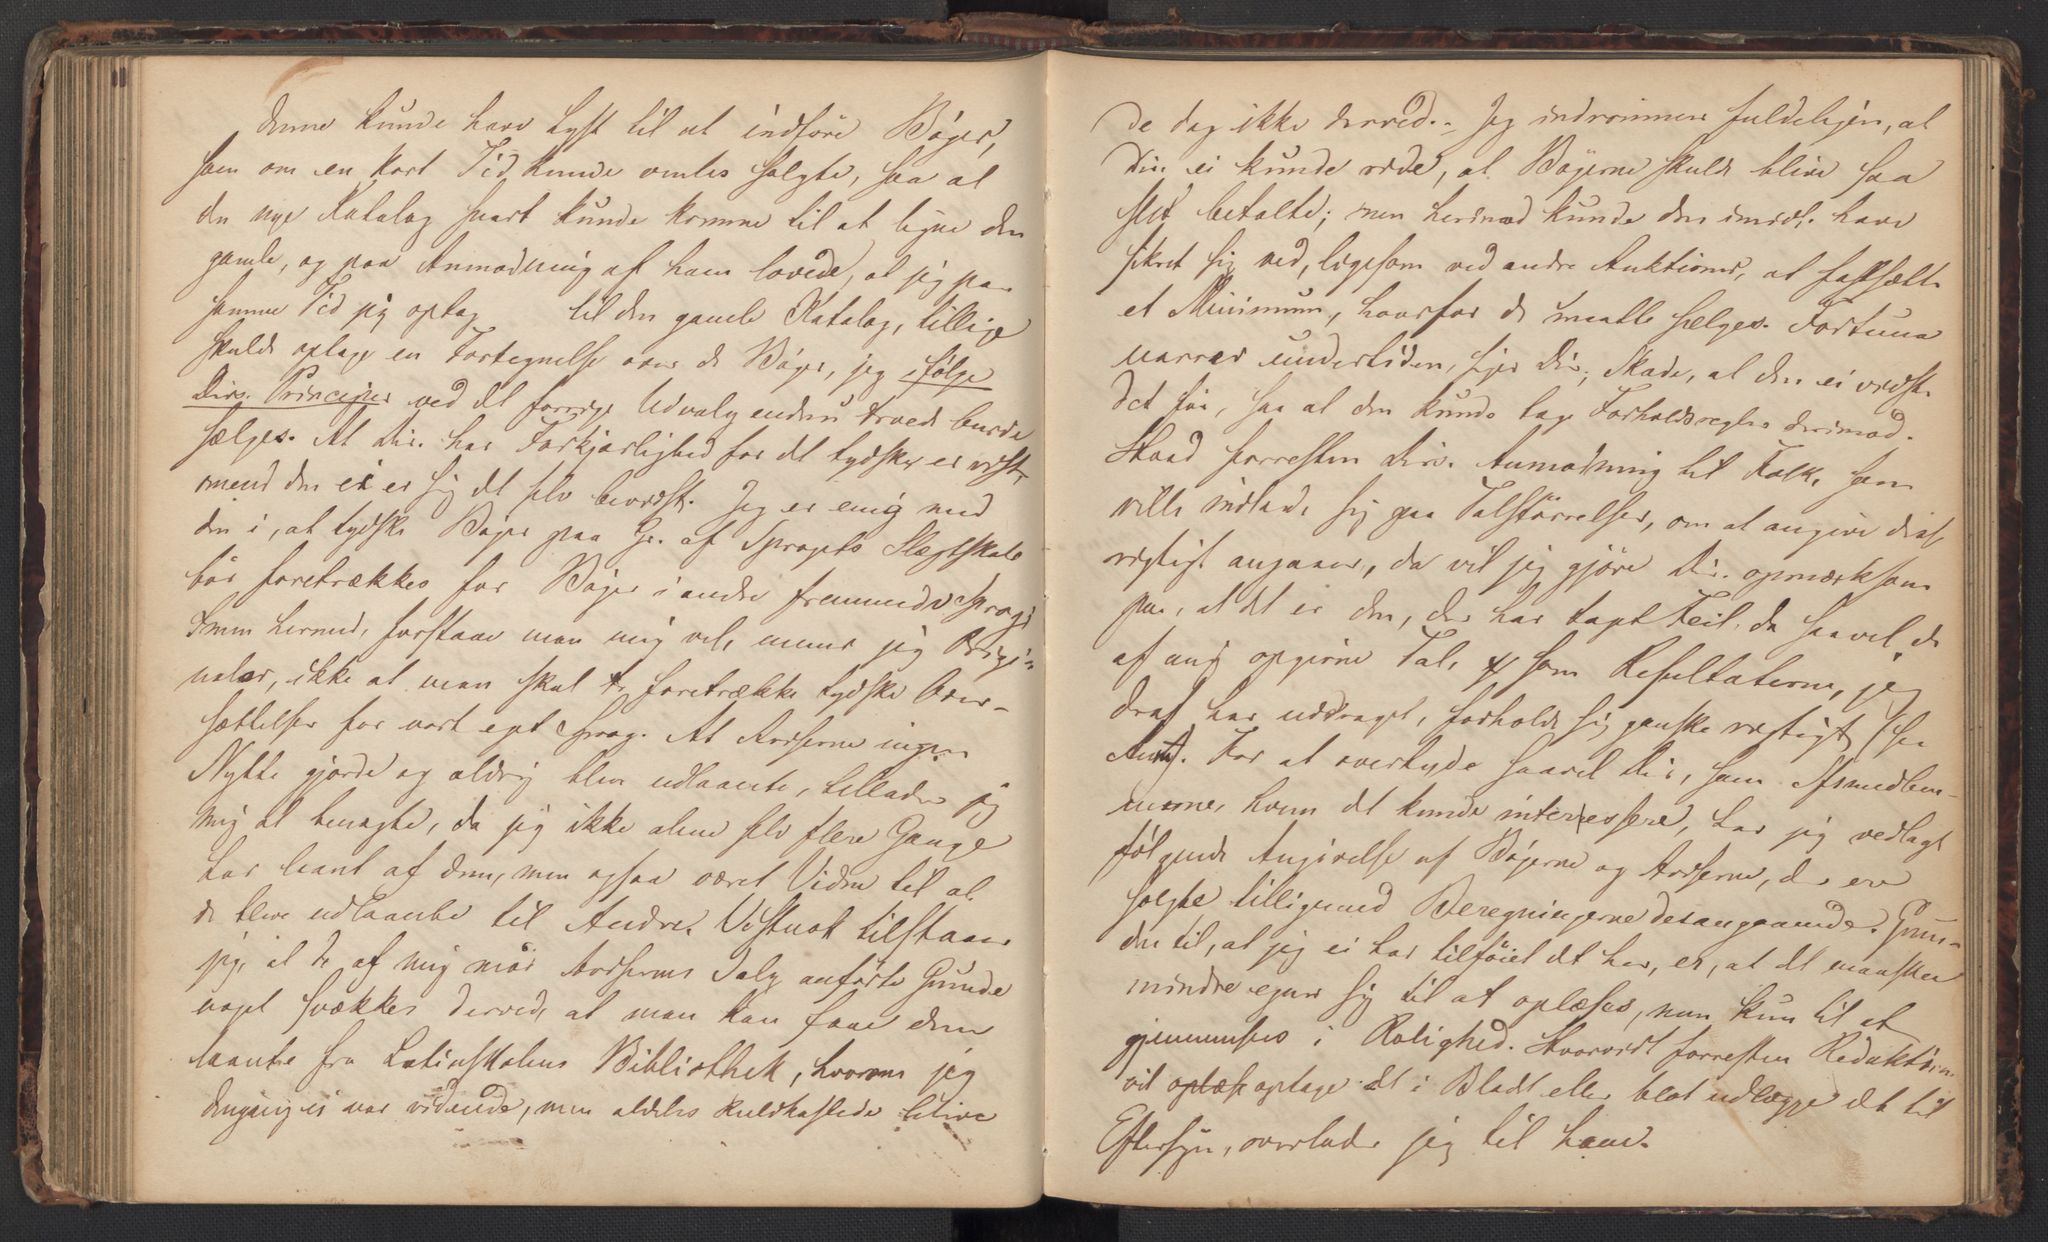 denne kunde have Lyst til at indføre Bøger,
som om en kort Tid kunde ventes solgte, saa at
den nye Katalog snart kunde komme til at ligne den
gamle, og paa Anmodning af ham lovede, at jeg paa
samme Tid jeg optog til den gamle Katalog, tillige
skulde optage en Fortegnelse over de Bøger, jeg ifølge
Dir. Principer ved det forrige Udvalg endnu troede burde
sælges. At Dir. har Forkjærlighed for det tydske er vist,
omend den ei er sig det selv bevidst. Jeg er enig med
den i, at tydske Bøger paa Gr. af Sprogets Slægtskab
bør foretrækkes for Bøger i andre fremmede Sprog;
men hermed, forstaae man mig vel, mener jeg Origi-
naler, ikke at man skal foretrække tydske Over-
sættelser for vort eget Sprog. At Aviserne ingen
Nytte gjorde og aldrig blev udlaante, tillader jeg
mig at benægte, da jeg ikke alene selv flere Gange
har laant af dem, men ogsaa været Vidne til at
de bleve udlaante til Andre. Vistnok tilstaaer
jeg, at de af mig mod Avisernes Salg anførte Grunde
noget svækkes derved, at man kan faae dem
laante fra Latinskolens Bibliothek, hvorom jeg
dengang ei var vidende, men aldeles kuldkastede blive
de dog ikke derved. – Jeg indrømmer fuldeligen, at
Dir. ei kunde vide, at Bøgerne skulde blive saa
slet betalte; men herimod kunde den imidl. have
sikret sig ved, ligesom ved andre Auktioner, at fastsætte
et Minimum, hvorfor de maatte sælges. Fortuna
narrer undertiden, siger Dir; Skade, at den ei vidste
det før, saa at den kunde tage Forholdsregler derimod.
Hvad forresten Dir. Anmodning til Folk, som
ville indlade sig paa Talstørrelser, om at angive dem
rigtigt angaaer, da vil jeg gjøre Dir. opmærksom
paa, at det er den, der har taget Feil, da saavel de
af mig opgivne Tal, som Resultaterne, jeg
deraf har uddraget, forholde sig ganske rigtigt (see
Anm). For at overtyde saavel Dir, som Msmedlem-
merne, hvem det kunde interessere, har jeg vedlagt
følgende Angivelse af Bøgerne og Aviserne, der ere
solgte, tilligemed Beregningerne desangaaende. Grun-
den til, at jeg ei har tilføiet det her, er, at det maaskee
mindre egner sig til at oplæses, men kun til at
gjennemsees i Rolighed. Hvorvidt forresten Redaktøren
vil optage det i Bladet eller blot udlægge det til
Eftersyn, overlader jeg til ham.